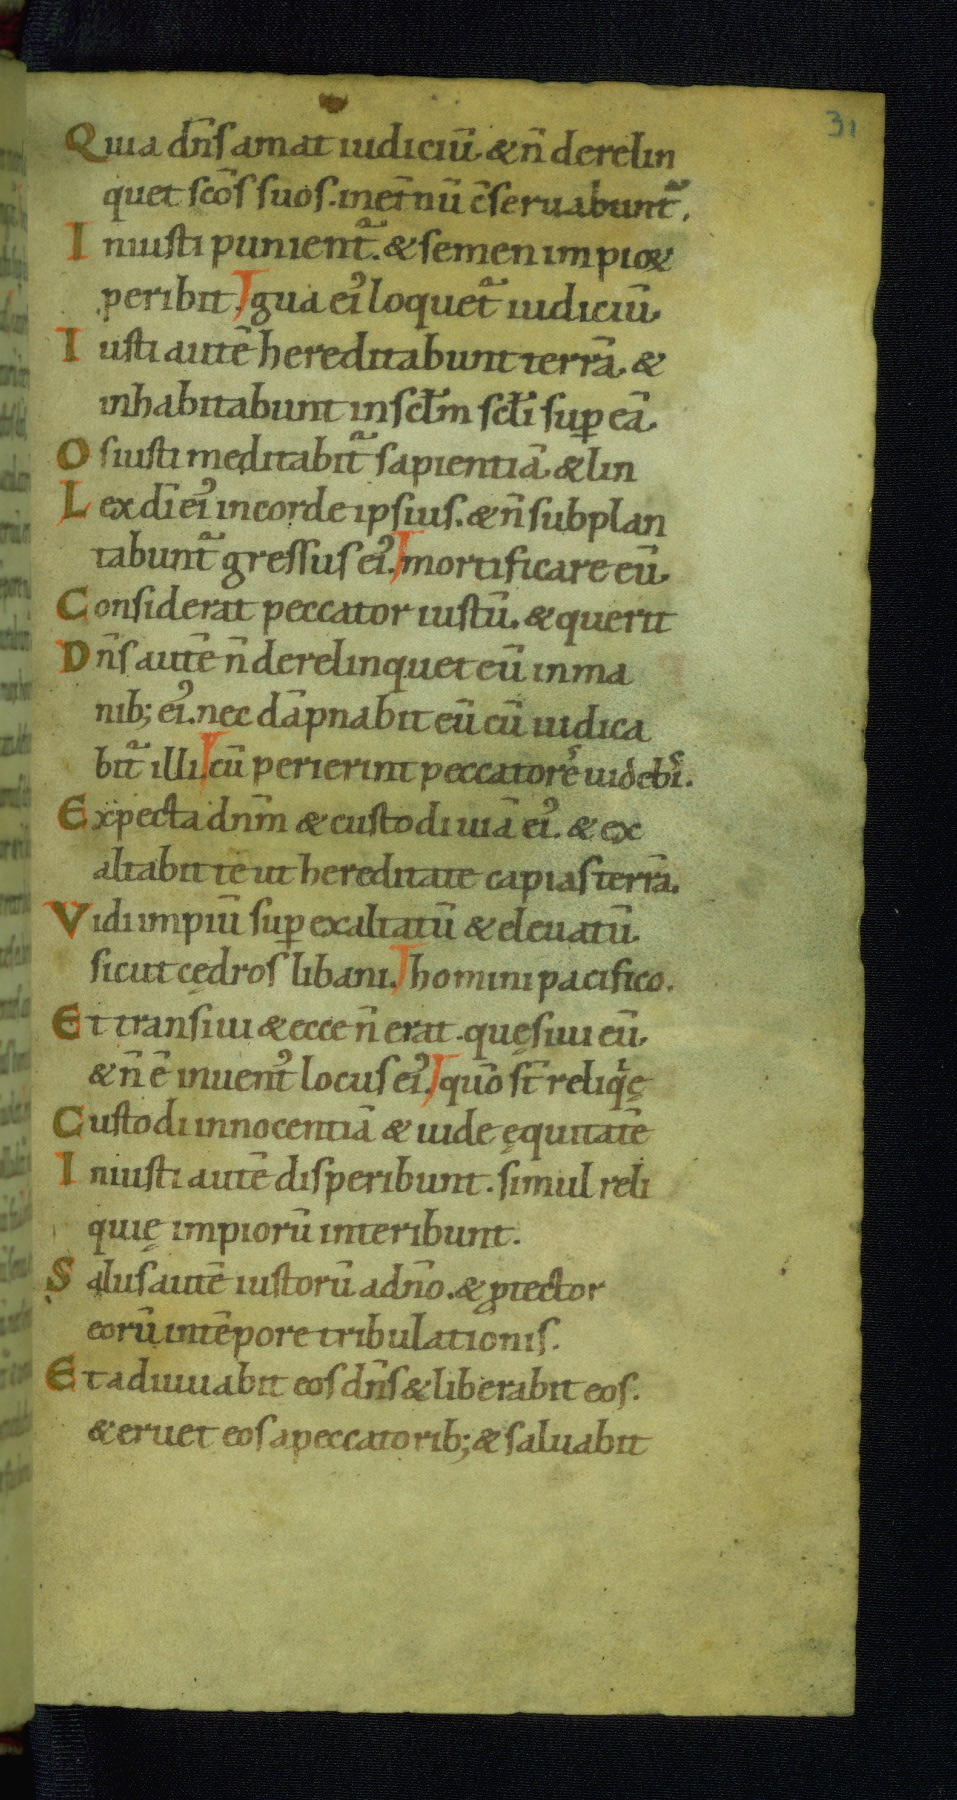 31
Quia dn̄s amat iudiciū & n̄ derelin
quet scōs suos. in et̄nū c̄seruabunt᷑.
Iniusti punient᷑. & semen impioꝝ
peribit. gua ei᾽ loquet᷑ iudiciū.
Iusti autē hereditabunt terrā. &
inhabitabunt in sctm̄ scti̅ suꝑ eā.
Os iusti meditabit᷑ sapientiā. & lin
Lex di̅ ei᾽ in corde ipsius. & n̄ subplan
tabunt᷑ gressus ei᾽. mortificare eū.
Considerat peccator iustū. & querit
Dn̄s autē n̄ derelinquet eū in ma
nib; ei᾽. nec dāpnabit eū cū iudica
bit᷑ illi. cū perierint peccatore᷒ uidebi᷒.
Expecta dn̄m & custodi uiā ei᾽. & ex
altabit te ut hereditate capias terrā.
Vidi impiū suꝑexaltatū & eleuatū.
sicut cędros libani. homini pacifico.
Et transiui & ecce n̄ erat. quęsiui eū.
& n̄ ē inuent᾽ locus ei᾽. quō st̄ reliqͥę
Custodi innocentiā & uide ęquitatē
Iniusti autē disperibunt. simul reli
quię impiorū interibunt.
Salus autē iustorū a dn̄o. & ꝓtector
eorū in tēpore tribulationis.
Et adiuuabit eos dn̄s & liberabit eos.
& eruet eos a peccatorib; & saluabit